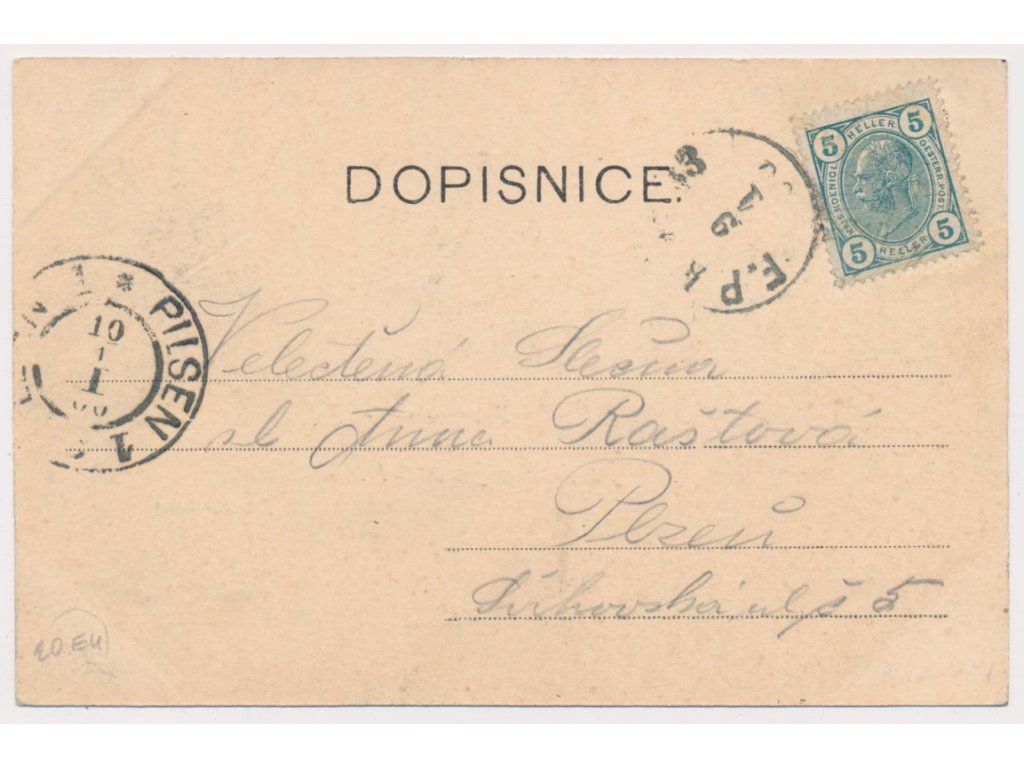 DOPISNICE.
5 HELLER 5
KAIS. KOENIGL. OESTERR. POST
5 HELLER 5
F.P.
PILSEN 1
10
1
Velectěná Slečna
sl Anna Raštová
Plzeň
ul č 5
20